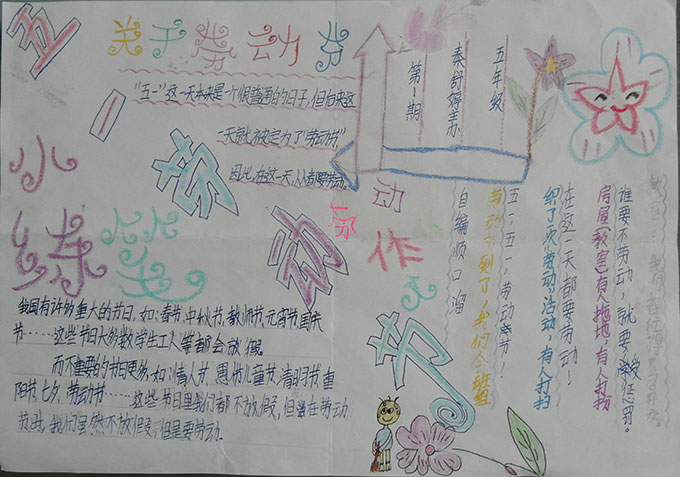 五一劳动节
关于劳动节
"五一"这一天本来是一个很普通的日子,但后来这
一天就被定为了"劳动节"
因此,在这一天,人人都要劳动。
五年级
秦舒婷主办
第1期
小练笔
我国有许多重大的节日,如:春节、中秋节、教师节、元宵节、国庆
节……这些节日大多数学生工人等都会放假。
而不重要的节日更多,如:情人节、愚书儿童节、清明节、重
阳节、七夕、劳动节……这些节日里我们都不放假,但是在劳动
节时,我们虽然不放假,但是要劳动。
动作
自编顺口溜
五一五一,劳动节!
劳动节到了,我们全班组
织了一次劳动活动,有人打扫
在这一天都要劳动!
房屋(教室)有人拖地,有人打扮
谁要不劳动,就要受惩罚。